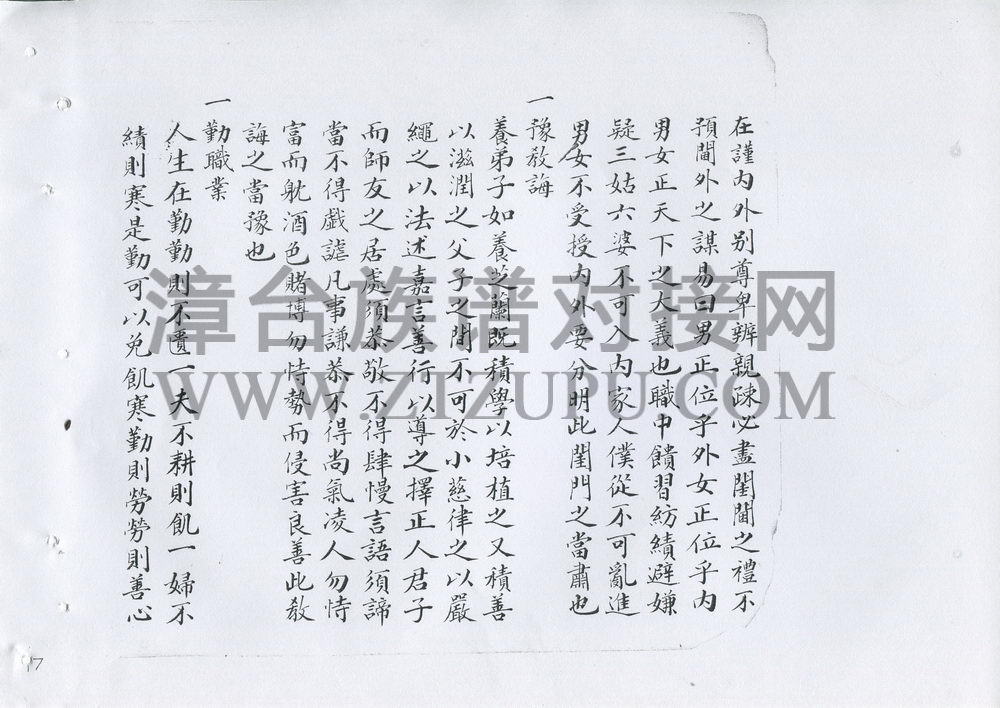 在謹內外别尊卑辨親疎必盡閨閫之禮不
預閫外之謀易曰男正位乎外女正位乎内
男女正天下之大義也職中饋習紡績避嫌
疑三姑六婆不可入內家人僕從不可亂進
男女不受授内外要分明此閨門之當肅也
一
豫教誨
養弟子如養芝蘭既積學以培植之又積善
以滋潤之父子之間不可於小慈律之以嚴
繩之以法述嘉言善行以導之擇正人君子
而師友之居處須恭敬不得肆慢言語須諦
當不得戯謔凡事謙恭不得尚氣凌人勿恃
富而躭酒色賭博勿恃勢而侵害良善此教
誨之當豫也
一
勤職業
人生在勤勤則不匱一夫不耕則飢一婦不
績則寒是勤可以免飢寒勤則勞勞則善心
17
漳台族谱对接网
WWW.ZTZUPU.COM